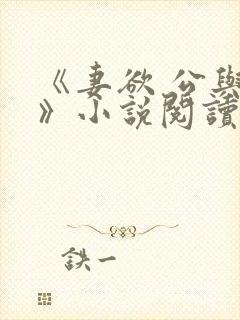 《妻欲 公與
》小說閱讀
鉄一